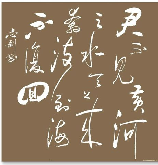 君不見黃河
之水天上来
奔流到海
不復回